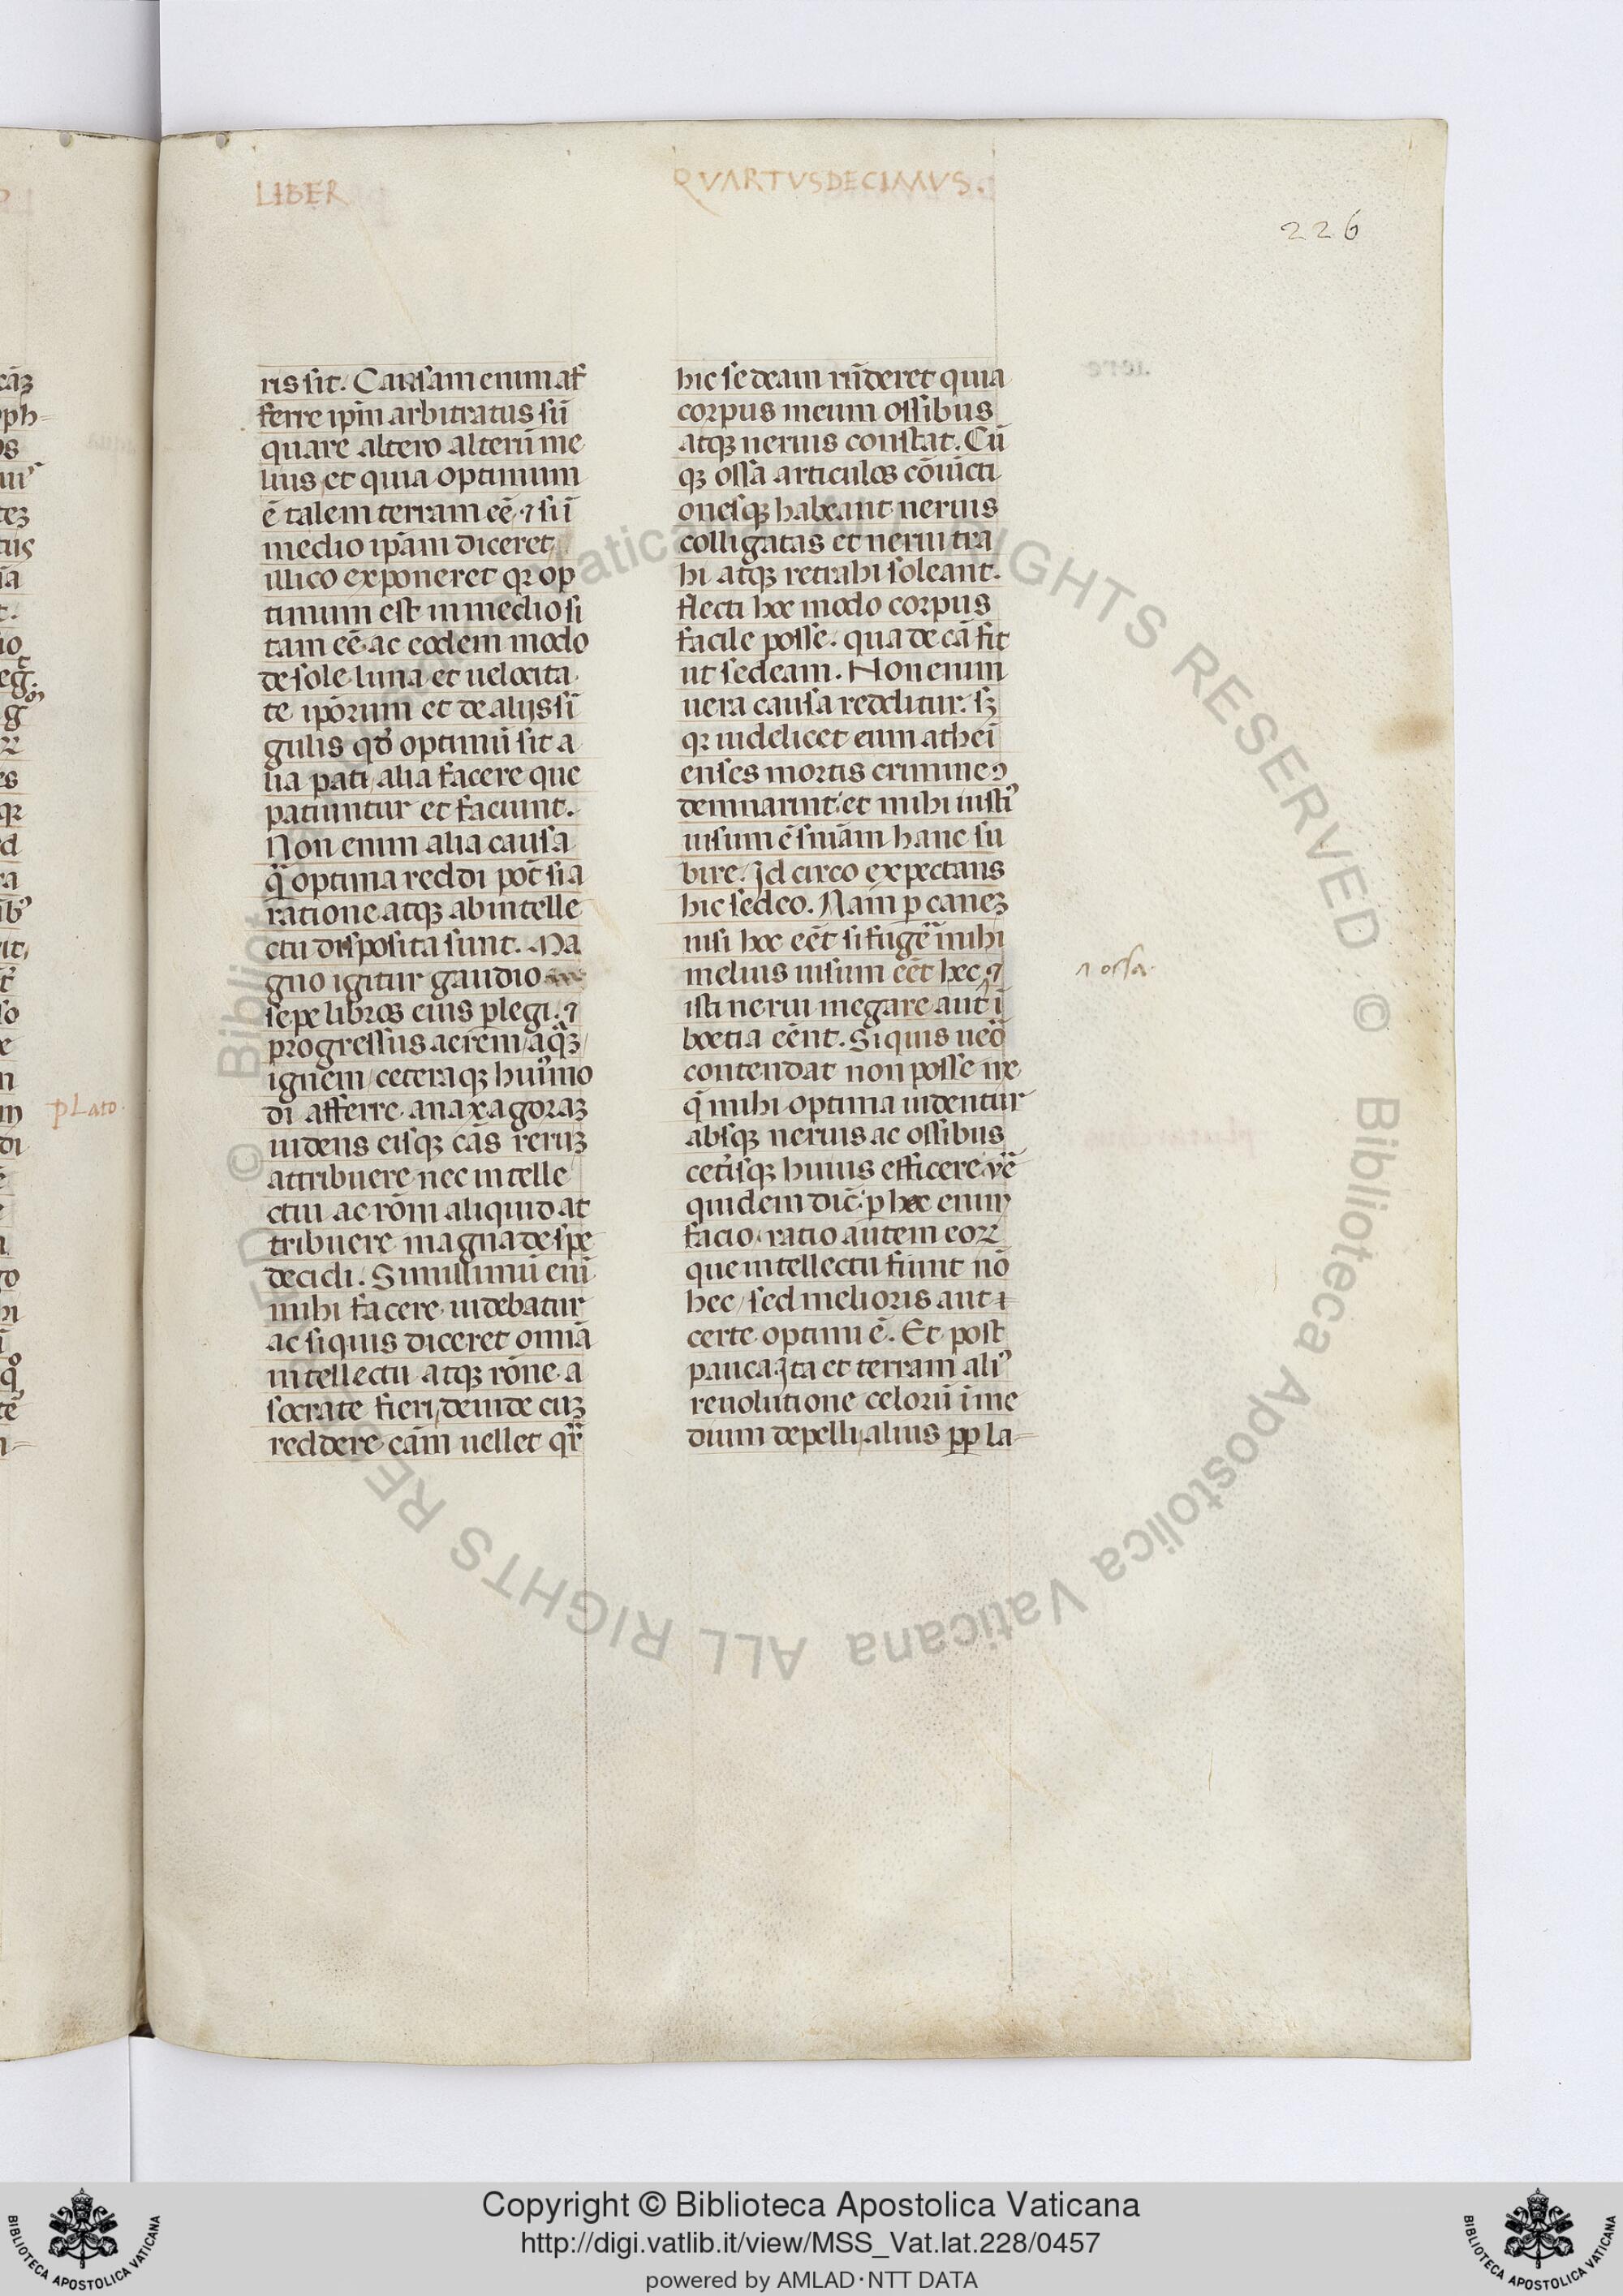 LIBER
QVARTVSDECIMVS.
226
ris sit. Causam enim af
ferre ip̄m arbitratus sū
quare altero alterū me
lius et quia optimum
ē talem terram eē ⁊ si ī
medio ip̄am diceret
illico exponeret qꝛ op
timum est in medio si
tam eē ac eodem modo
de sole luna et uelocita
te ip̄orum et de alijs sī
gulis qđ optimū sit a
lia pati alia facere que
patiuntur et faciunt.
Non enim alia causa
q̄ optima reddi pōt si a
ratione atqꝫ ab intelle
ctu disposita sunt. Ma
gno igitur gaudio
sepe libros eius ꝑlegi. ⁊
progressus aerem aq̄ꝫ
ignem ceteraqꝫ huiꝰmo
di afferre anaxagoraꝫ
uidens eisqꝫ cās rerūꝫ
attribuere nec intelle
ctui ac rōni aliquid at
tribuere magna de spe
decidi. Simillimū eni
mihi facere uidebatur
ac siquis diceret omīa
intellectu atqꝫ rōne a
socrate fieri deinde cuꝫ
reddere cām uellet qr̄
hic sedeam rn̄deret quia
corpus meum ossibus
atqꝫ neruis constat. Cū
qꝫ ossa articulos cōuicti
onesqꝫ habeant neruis
colligatas et nerui tra
hi atqꝫ retrahi soleant.
flecti hoc modo corpus
facile posse. qua de cā fit
ut sedeam. Non enim
uera causa redditur. sꝫ
qꝛ uidelicet eum athei
enses mortis crimine ꝯ
demnarint et mihi iustiꝰ
uisum ē snīam hanc su
bire. Idcirco expectans
hic sedeo. Nam ꝑ caneꝫ
nisi hoc eēt si fugē mihi
melius uisum eēt hec ⁊
isti nerui megare aut ī
boetia eēnt. Siquis ueō
contendat non posse me
q̄ mihi optima uidentur
absqꝫ neruis ac ossibus
cet̄isqꝫ huius efficere uē
quidem dic̄ ꝑ hec enim
facio ratio autem eoꝝ
que intellectu fiunt nō
hec sed melioris aut
certe optimi ē. Et post
pauca Ita et terram aliꝰ
reuolutione celorū ī me
dium depelli alius ꝓꝑ la-
⁊ ossa.
plato